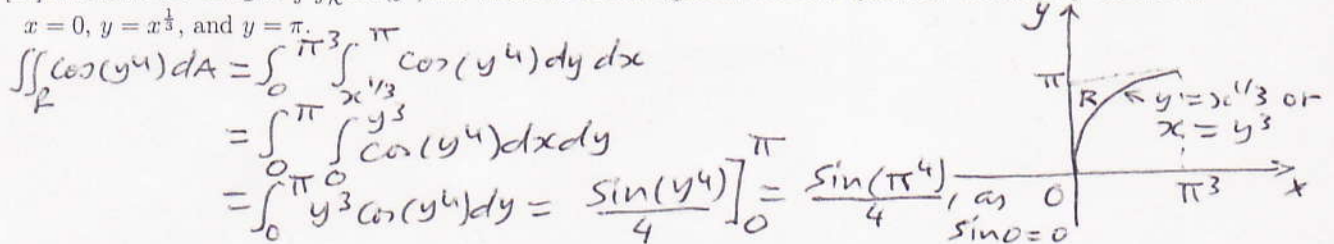 x = 0, y = x^{1/3}, and y = π.
∬_R cos(y^4) dA = ∫_0^{π^3} ∫_{x^{1/3}}^{π} cos(y^4) dy dx
= ∫_0^{π} ∫_0^{y^3} cos(y^4) dx dy
= ∫_0^{π} y^3 cos(y^4) dy = sin(y^4)/4 ]_0^{π} = sin(π^4)/4, as sin 0 = 0
y
π
R
y = x^{1/3} or
x = y^3
0
π^3
x